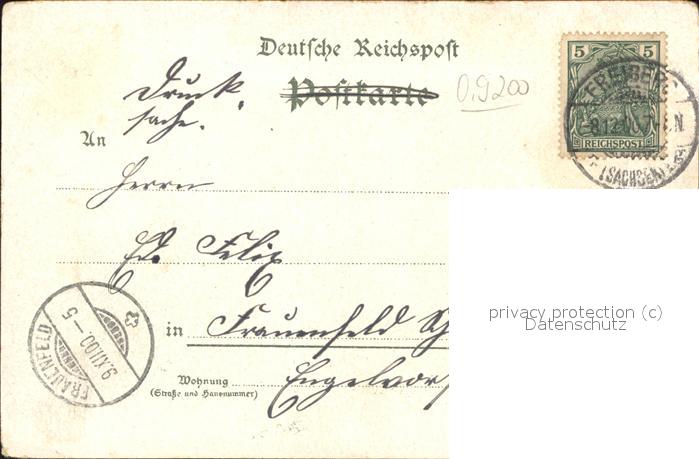 Deutsche Reichspost
Druck-
sache.
Postkarte
0.9200
5 5
REICHSPOST
FREIBERG
8.12.
7-8.N.
(SACHSEN)
An
Herrn
Ed. Felix
in Frauenfeld Sch
Engelvor
Wohnung
(Straße und Hausnummer)
FRAUENFELD
9.XII.00.–5
privacy protection (c)
Datenschutz